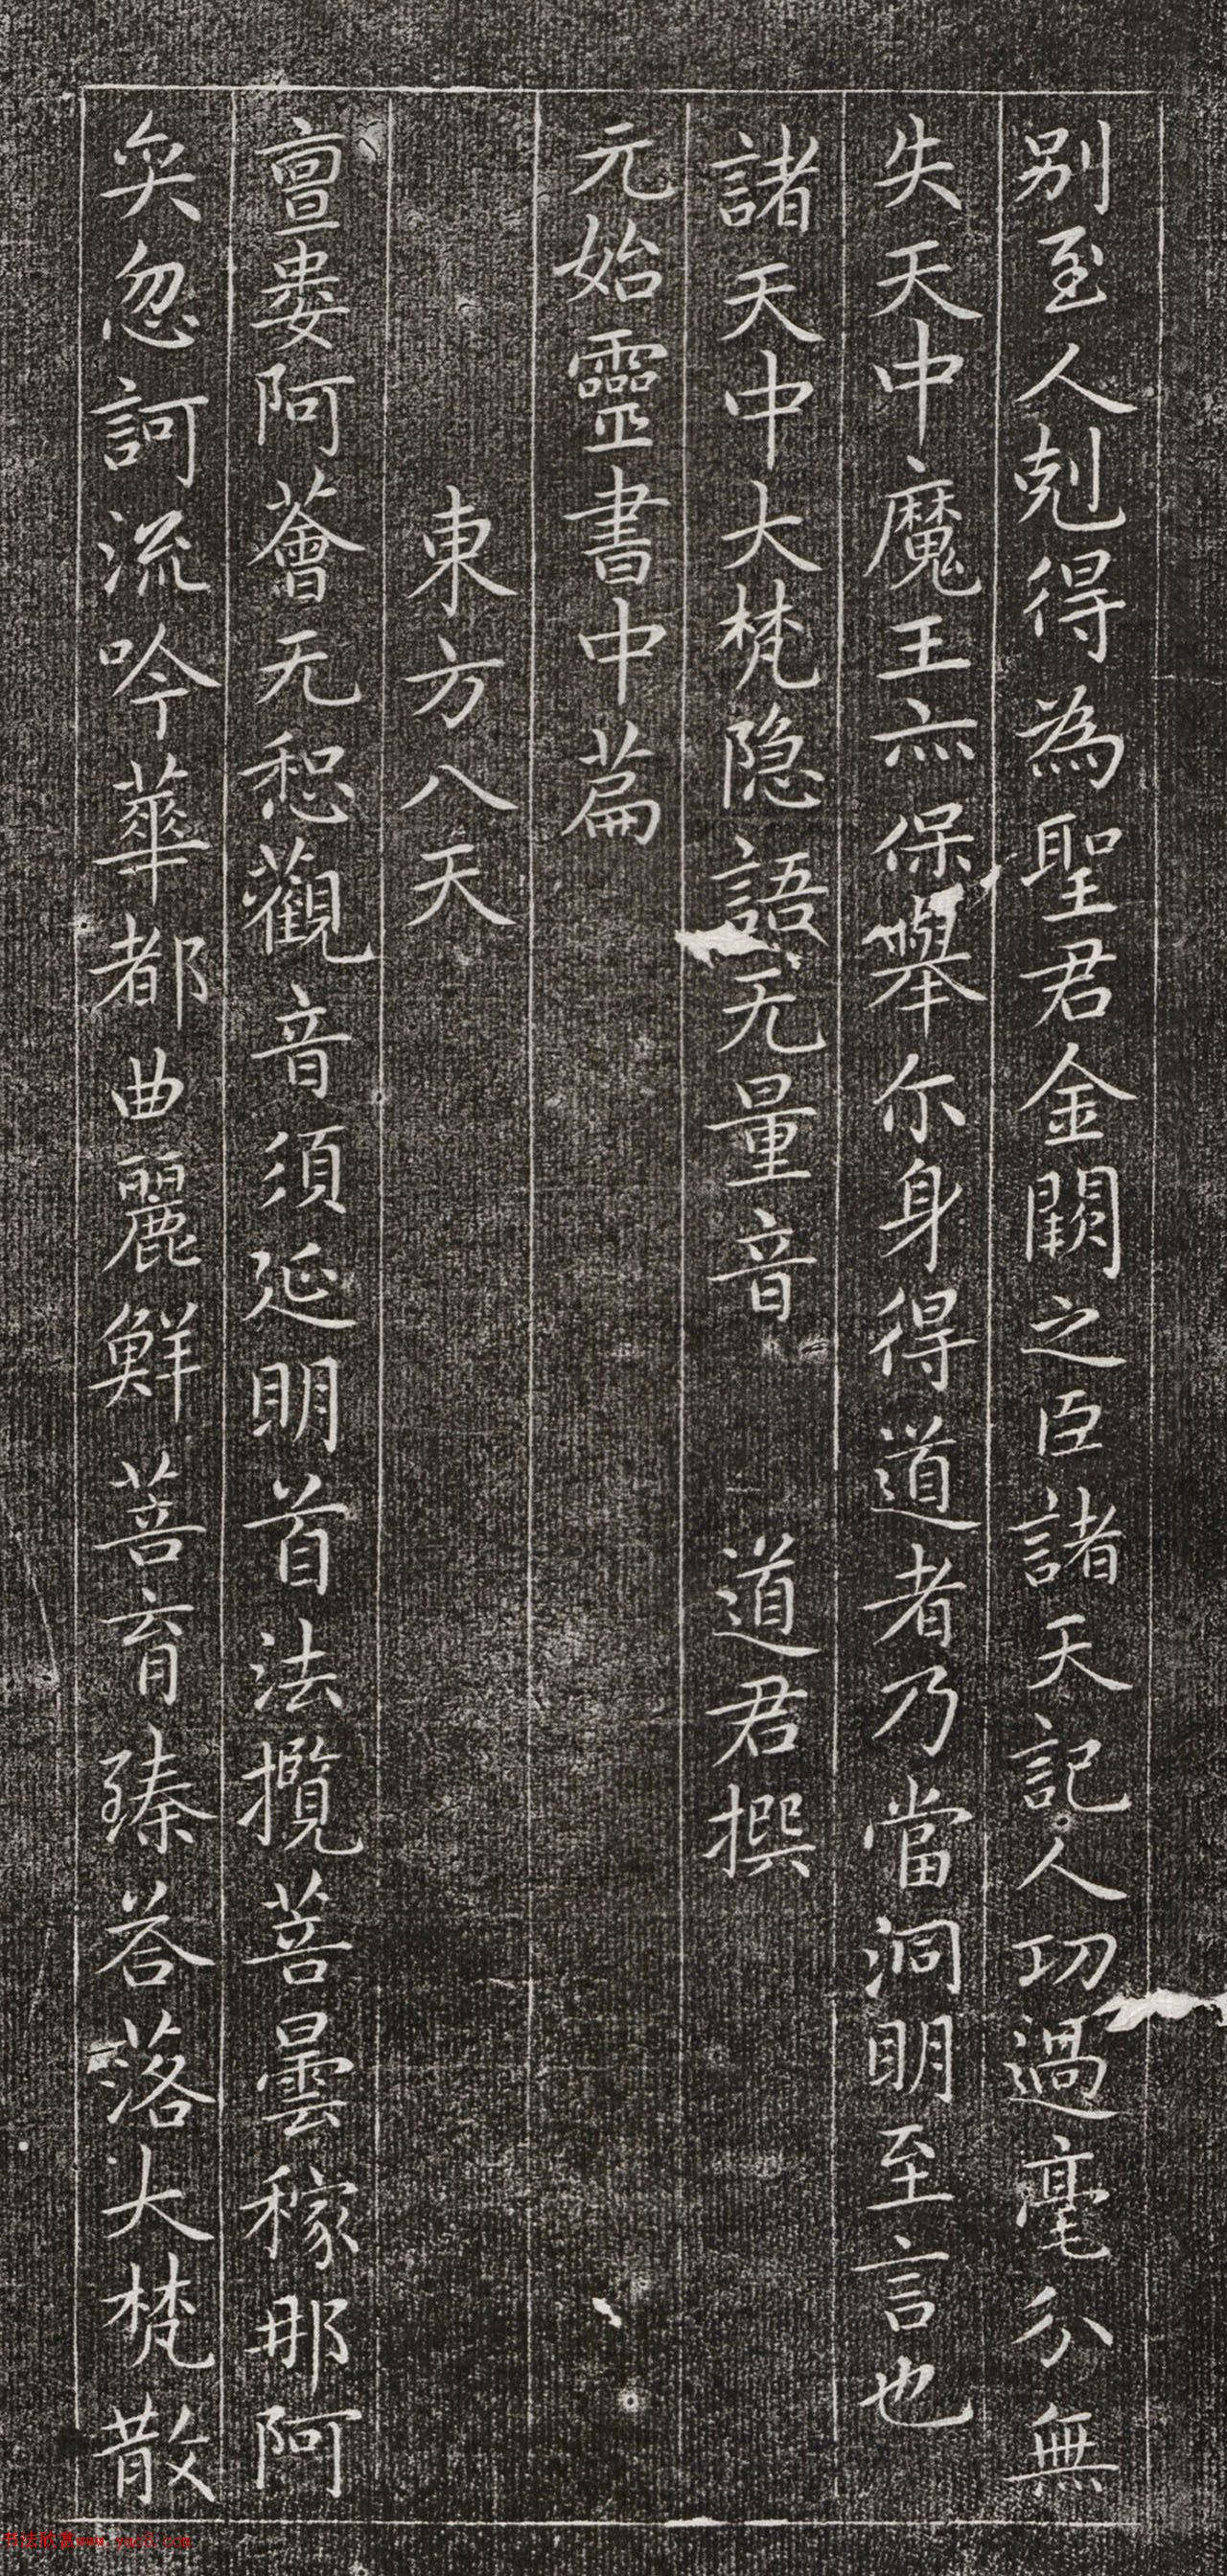 别至人剋得為聖君金闕之臣諸天記人功過毫分無
失天中魔王亦保舉尔身得道者乃當洞明至言也
諸天中大梵隐語无量音　道君撰
元始靈書中萹
東方八天
亶婁阿薈无惒觀音須延明首法攬菩曇稼那阿
奕忽訶流吟華都曲麗鮮菩育臻荅落大梵散
书法欣赏www.yac8.com